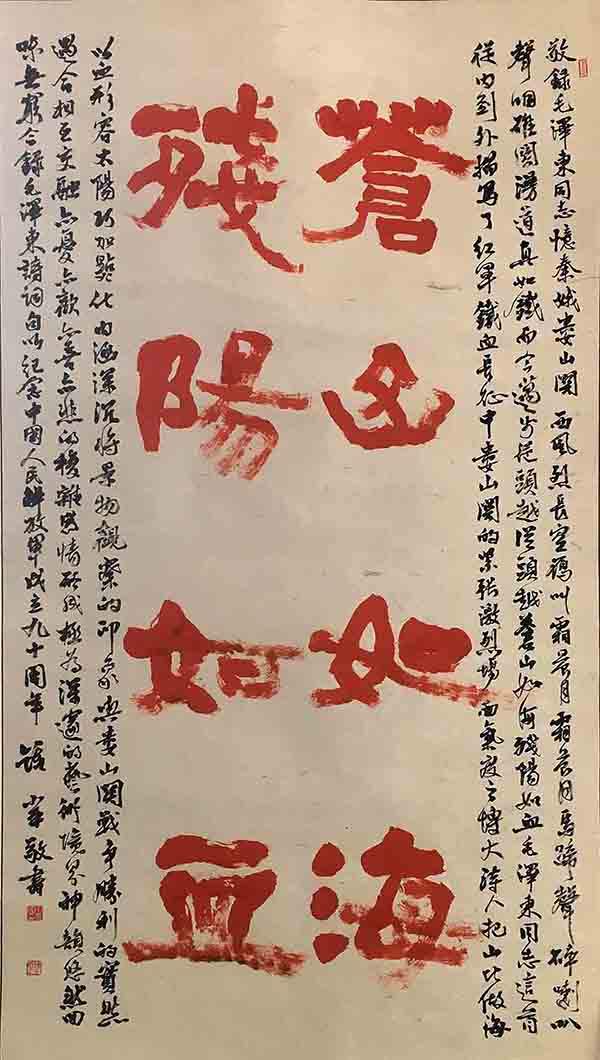 敬錄毛澤東同志憶秦娥婁山関 西風烈長空鴈叫霜晨月霜晨月馬蹄聲碎喇叭
聲咽雄関漫道真如鐵而今邁步從頭越從頭越蒼山如海殘陽如血毛澤東同志這首
從内到外描寫了紅軍鐵血長征中婁山関的緊張激烈場面氣度之博大詩人把山比做海
蒼山如海
殘陽如血
以血形容太陽巧加點化内涵深沉將景物觀察的印象与婁山関戰争勝利的實感
遇合相互交融亦憂亦歡亦喜亦悲的複雜思情形成極為深邃的藝術境界神韻悠然回
味無窮今錄毛澤東詩詞句以紀念中國人民解放軍成立九十周年 敬書